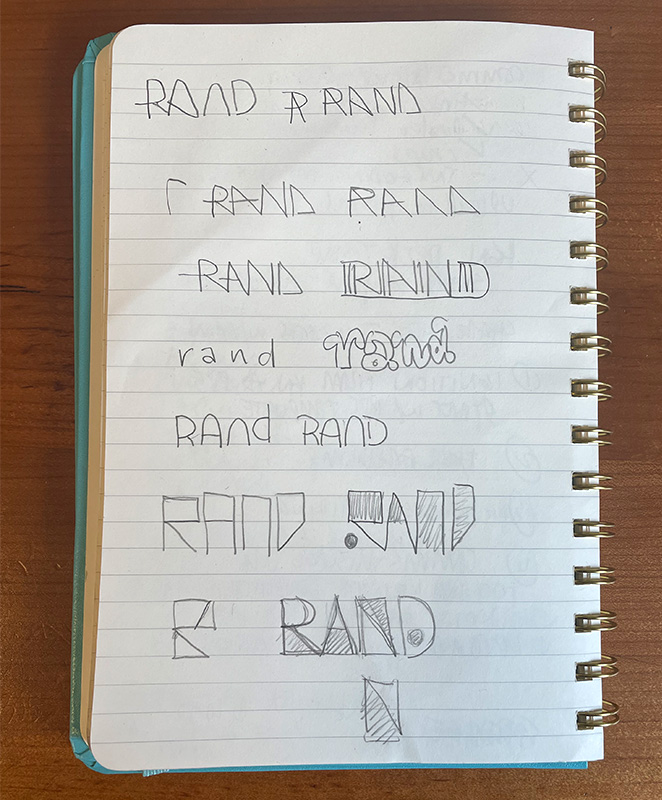 RAND R RAND
r RAND RAND
RAND RAND
rand rand
RAnd RAND
RAND RAND
R RAND
N